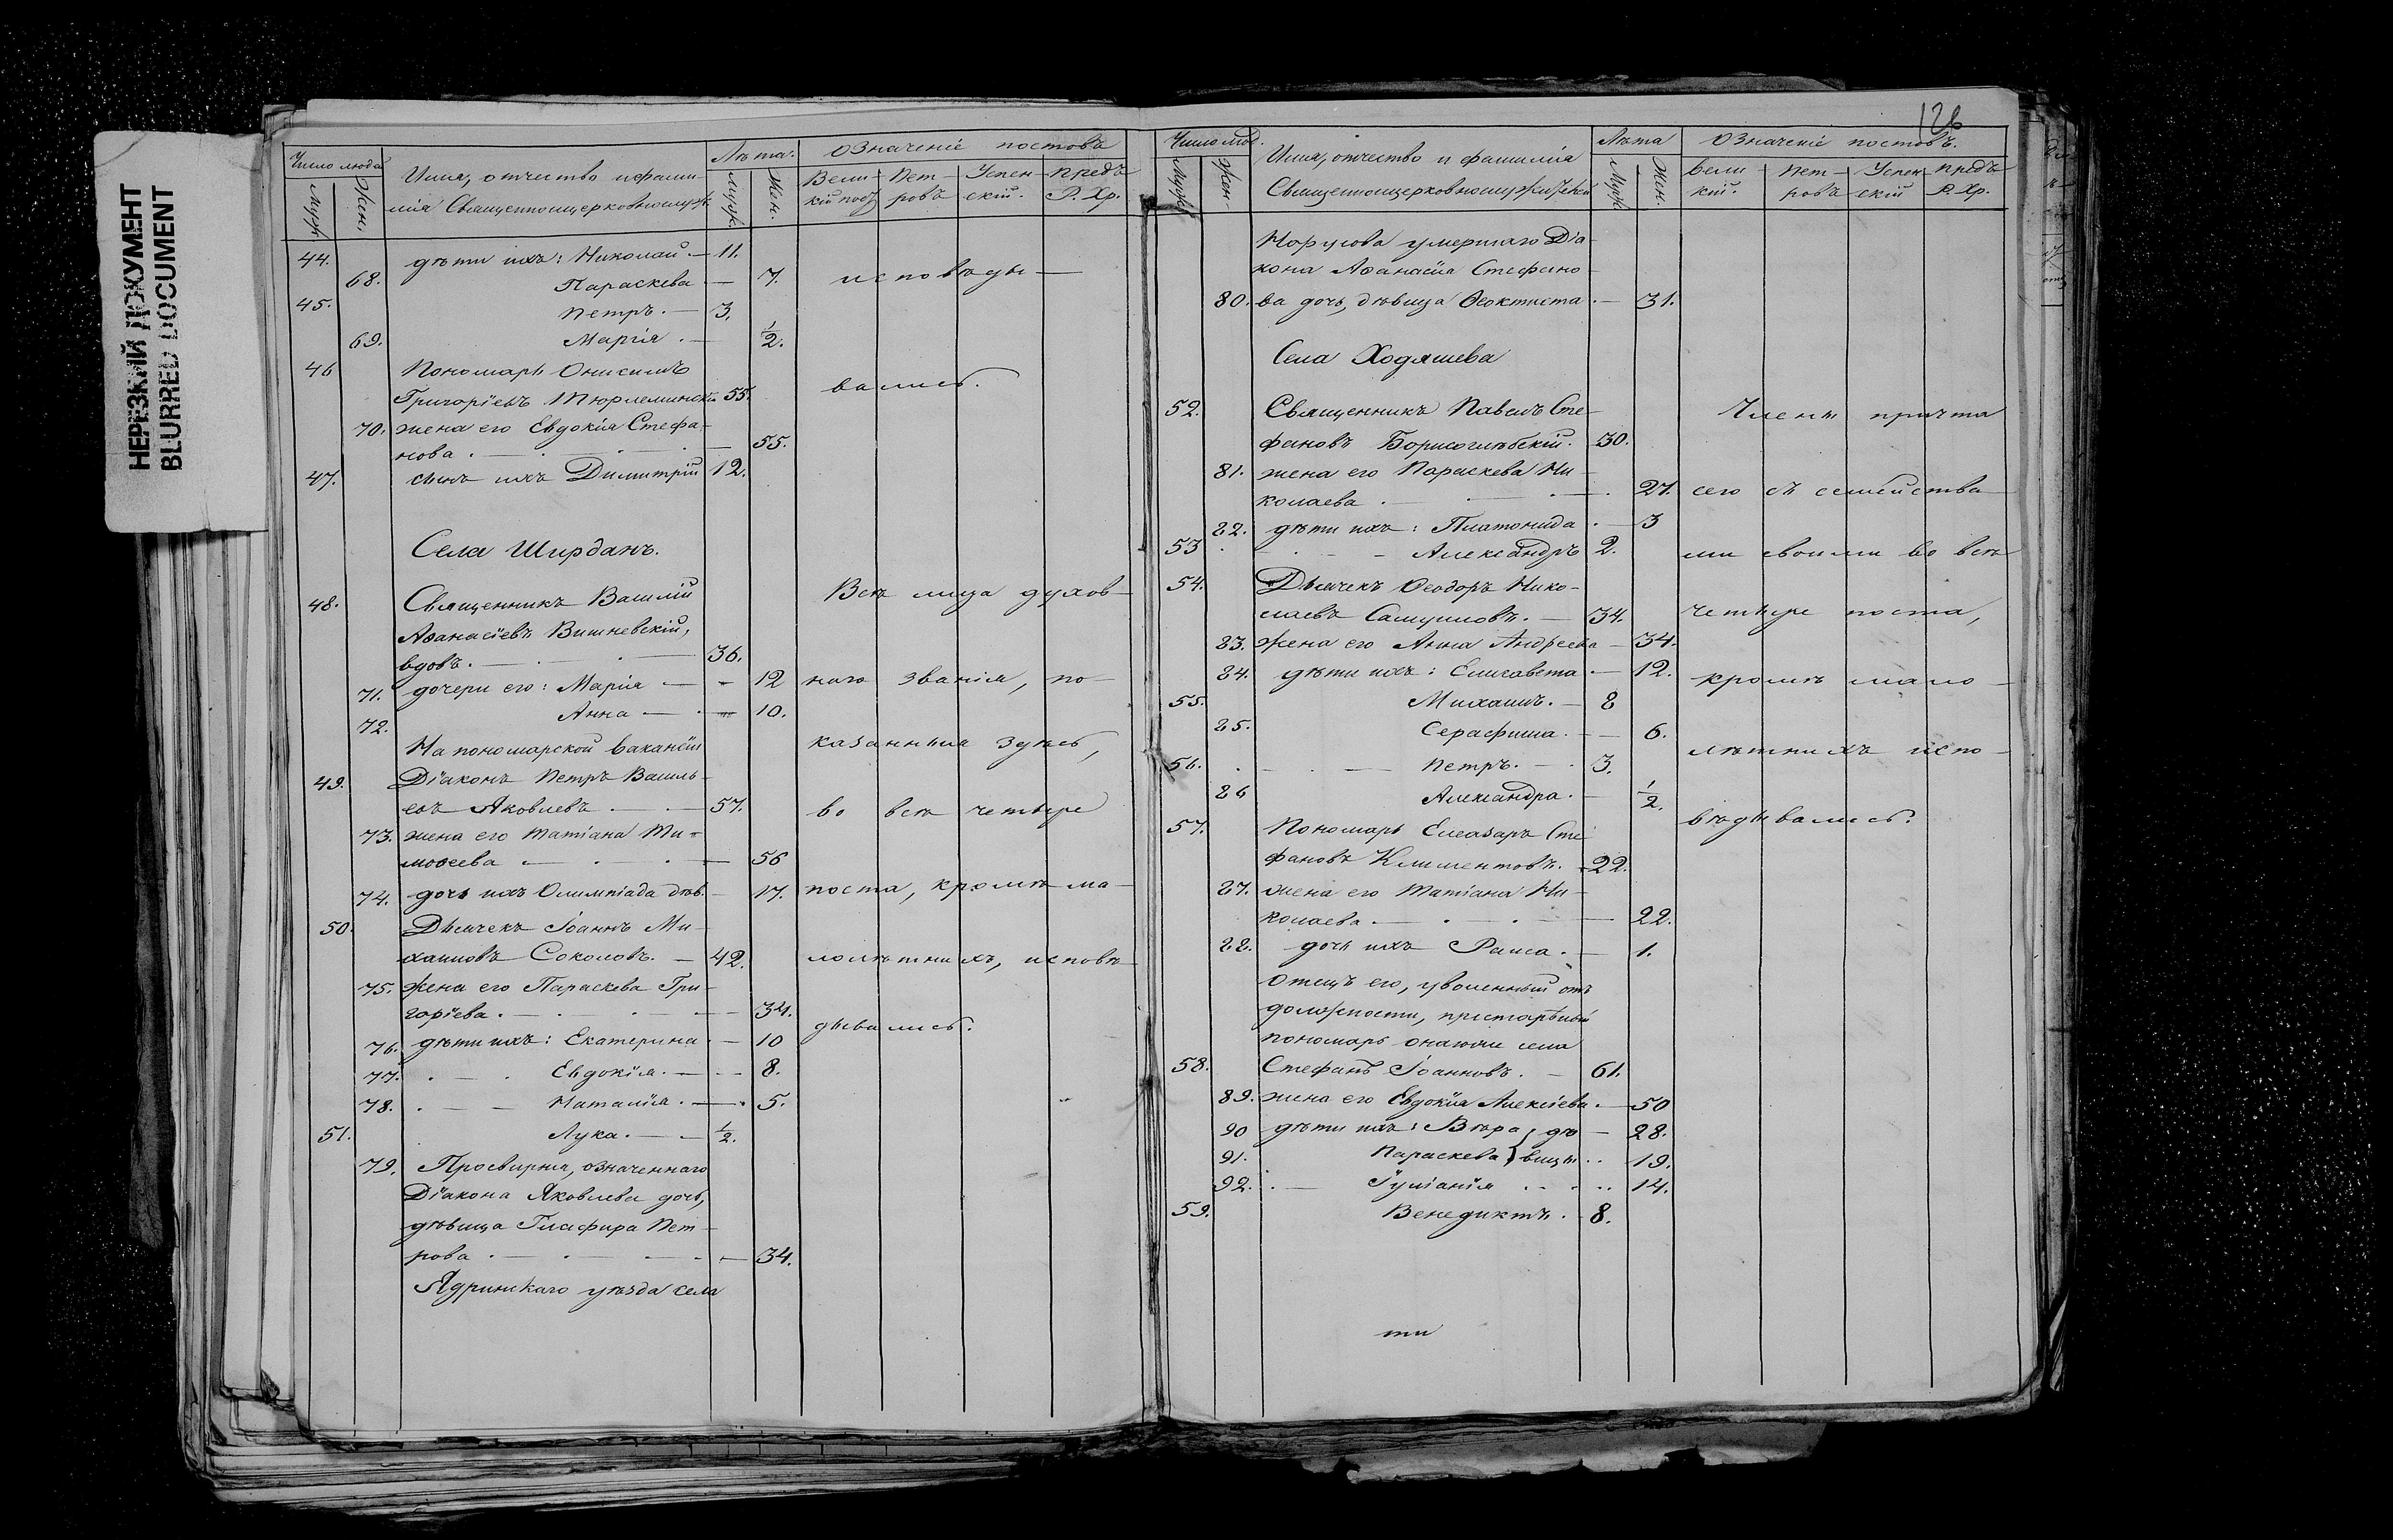 НЕРЕЗКИЙ ДОКУМЕНТ
BLURRED DOCUMENT
Число люде Имя, отчество и фами- Лѣта. Означеніе постовъ
Муж. Жен. лія Священноцерковнослуж. Муж. Жен. Вели- кій пост Пет- ровъ Успен- скій. Предъ Р. Хр.
44. дѣти ихъ: Николай. — 11.
68. Параскева — 7. исповѣды —
45. Петръ. — 3.
69. Марія. — 1/2.
46 Пономарь Онисимъ
Григорьевъ Тюрлеминскі 55. вались.
70. жена его Евдокія Стефа-
нова. — 55.
47. сынъ ихъ Димитрій 12.
Села Ширданъ.
48. Священникъ Василій Всѣ лица духов-
Аѳанасіевъ Вишневскій,
вдовъ. — 36.
71. дочери его: Марія — 12 наго званія, по-
72. Анна — 10.
На пономарской вакансіи казанныя здѣсь,
49. Діаконъ Петръ Василь-
евъ Яковлевъ — 57. во всѣ четыре
73. жена его Татіана Ти-
моѳеева — 56
74. дочь ихъ Олимпіада дѣв. — 17. поста, кромѣ ма-
50. Дьячекъ Іоаннъ Ми-
хаиловъ Соколовъ. — 42. лолѣтнихъ, исповѣ-
75. жена его Параскева Гри-
горіева. — 34. дывались.
76. дѣти ихъ: Екатерина. — 10
77. Евдокія. — 8.
78. Наталія. — 5.
51. Лука. — 1/2.
79. Просвирня, означеннаго
Діакона Яковлева дочь,
дѣвица Глафира Пет-
рова. — 34.
Ядринскаго уѣзда села
126
Число люд. Имя, отчество и фамилія Лѣта Означеніе постовъ.
Муж. Жен. Священноцерковнослужителей Муж. Жен. Вели- кій. Пет- ровъ Успен- скій Предъ Р. Хр.
Норусова умершаго Діа-
кона Аѳанасія Стефано-
80. ва дочь, дѣвица Ѳеоктиста. — 31.
Села Ходяшева
52. Священникъ Павелъ Сте- Члены причта
фановъ Борисоглѣбскій. 30.
81. жена его Параскева Ни-
колаева. — 27. сего съ семейства
82. дѣти ихъ: Платонида. — 3
53 Александръ 2. ми своими во всѣ
54. Дьячекъ Ѳеодоръ Нико-
лаевъ Самуиловъ. — 34. четыре поста,
83. жена его Анна Андреева — 34.
84. дѣти ихъ: Елисавета. — 12. кромѣ мало-
55. Михаилъ. — 8
85. Серафима. — 6. лѣтнихъ испо-
56. Петръ. — 3.
86 Александра. — 1/2. вѣдывались.
57. Пономарь Елеазаръ Сте
фановъ Климентовъ. — 22.
87. жена его Татіана Ни-
колаева. — 22.
88. дочь ихъ Раиса. — 1.
Отецъ его, уволенный отъ
должности, престарѣлый
пономарь онагоже села
58. Стефанъ Іоанновъ. — 61.
89. жена его Евдокія Алексіева. — 50
90 дѣти ихъ: Вѣра } дѣ — 28.
91. Параскева } вицы .. 19.
92. Іуліанія .. 14.
59. Венедиктъ. — 8.
ти